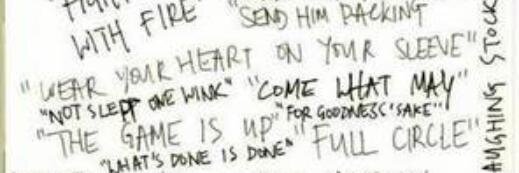 WITH FIRE "SEND HIM PACKING
"WEAR YOUR HEART ON YOUR SLEEVE"
"NOT SLEPT ONE WINK" "COME WHAT MAY"
"FOR GOODNESS' SAKE"
"THE GAME IS UP" "FULL CIRCLE"
"WHAT'S DONE IS DONE"
AUGHING STOCK